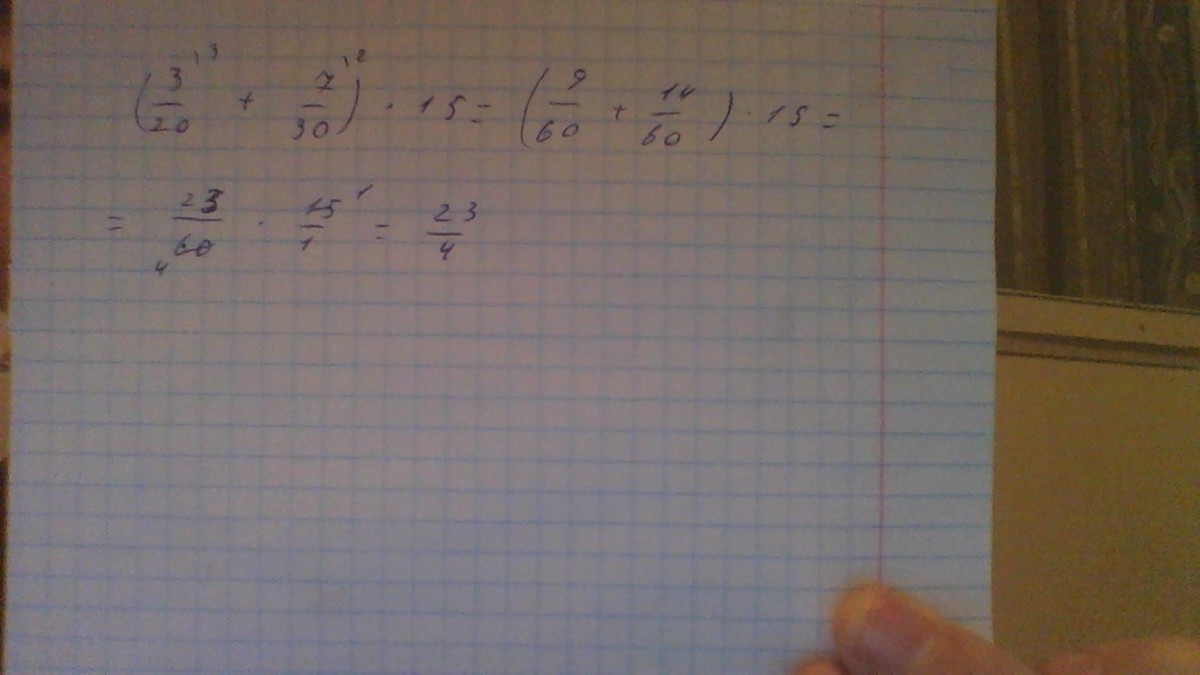 (3/20 ˡ³ + 7/30 ˡ²) · 15 = (9/60 + 14/60) · 15 =
= 23/60 ₄ · 15/1 ˡ = 23/4